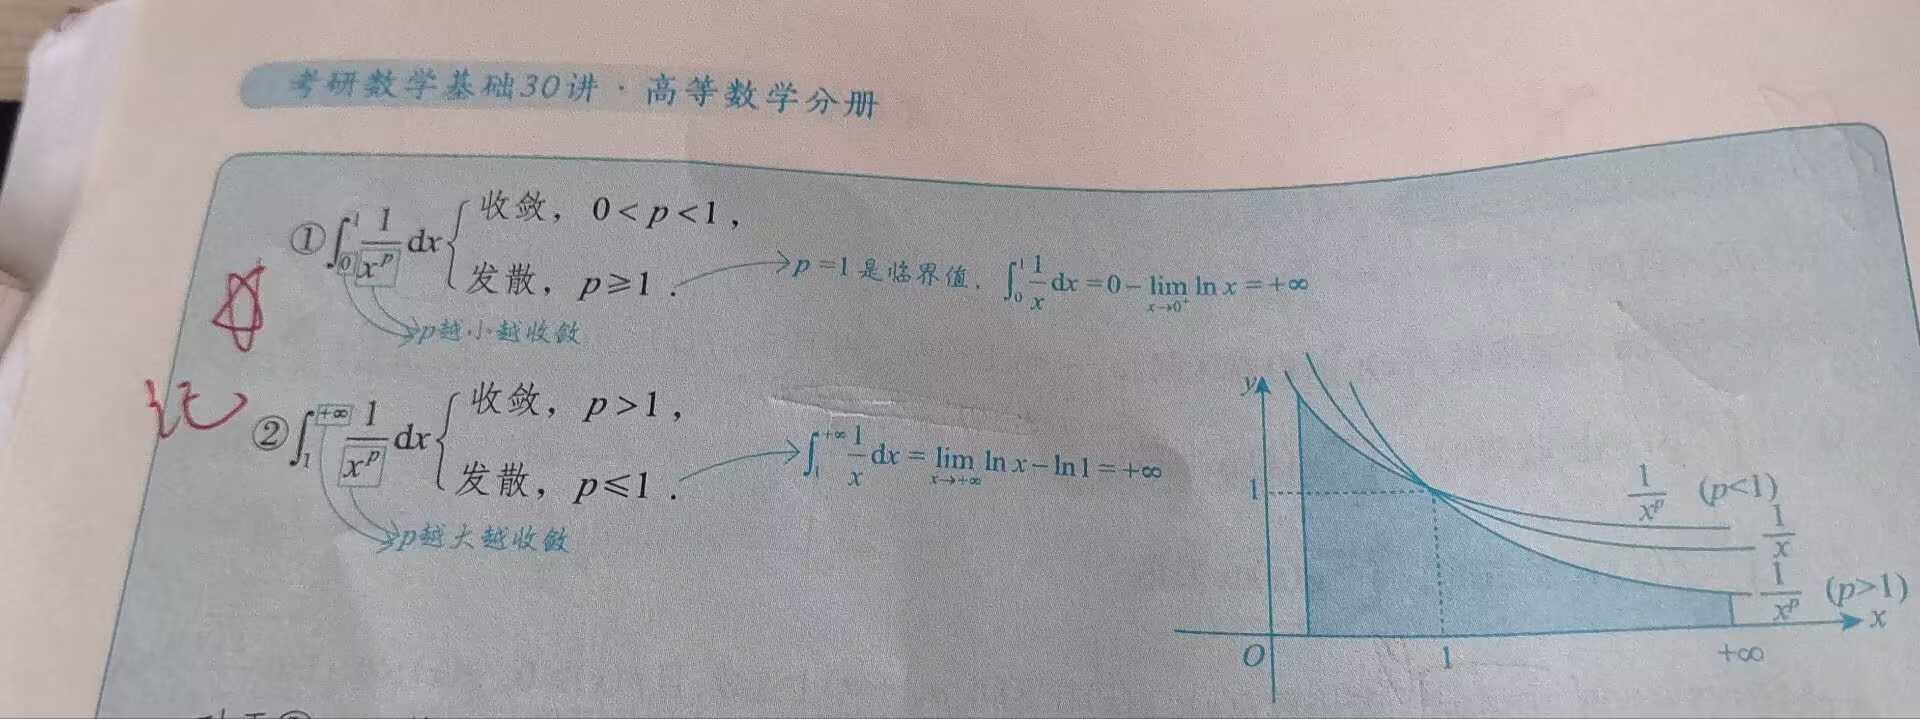 考研数学基础30讲·高等数学分册
①∫₀¹ 1/xᵖ dx { 收敛，0<p<1，
发散，p≥1．
p=1是临界值，∫₀¹ 1/x dx=0−lim_{x→0⁺} ln x=+∞
p越小越收敛
记
②∫₁^{+∞} 1/xᵖ dx { 收敛，p>1，
发散，p≤1．
∫₁^{+∞} 1/x dx=lim_{x→+∞} ln x−ln 1=+∞
p越大越收敛
y
1
1/xᵖ (p<1)
1/x
1/xᵖ (p>1)
x
O
1
+∞